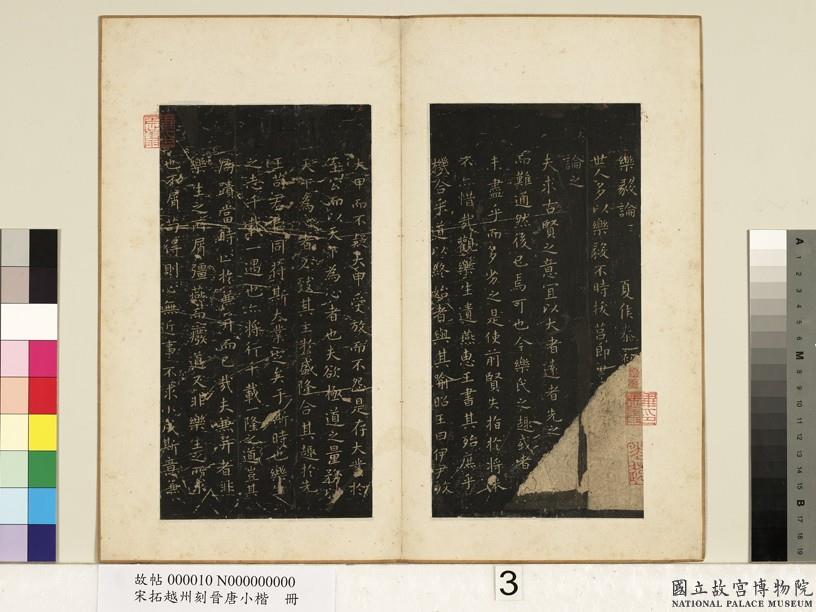 樂毅論 夏侯泰
世人多以樂毅不時拔莒即
論之
夫求古賢之意宜以大者遠者先之
而難通然後已焉可也今樂氏之趣或者
未盡乎而多劣之是使前賢失指於將來
不惜哉觀樂生遺燕惠王書其殆庶乎
機合乎道以終始者與其喻昭王曰伊尹放
大甲而不疑大甲受放而不怨是存大業於
至公而以天下為心者也夫欲極道之量務以
天下為心者必致其主於盛隆合其趣於先
王苟君臣同符斯大業定矣于斯時也樂生
之志千載一遇也亦將行千載一隆之道豈其
局蹟當時止於兼并而已哉夫兼并者非
樂生之所屑彊燕而廢道又非樂生之所求
也不屑苟得則心無近事不求小成斯意兼
故帖 000010 N000000000
宋拓越州刻晉唐小楷 冊
3
國立故宮博物院
NATIONAL PALACE MUSEUM
A 1 2 3 4 5 6 M 8 9 10 11 12 13 14 15 B 17 18 19